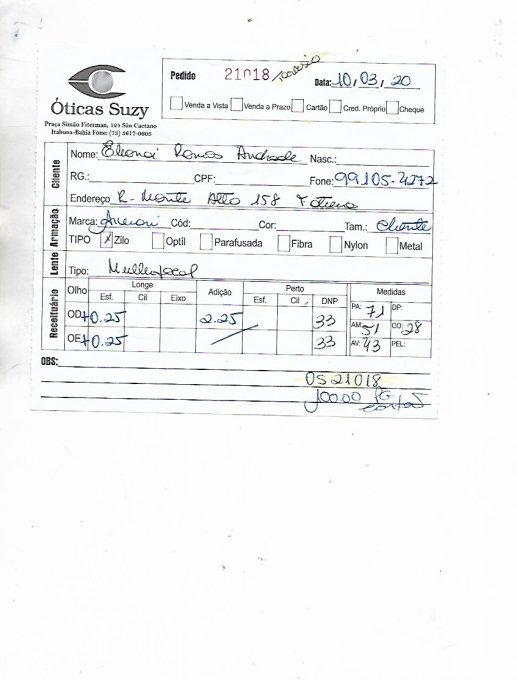 Óticas Suzy
Praça Simão Fiterman, 124 São Caetano
Itabuna-Bahia Fone: (73) 3617-0605
Pedido 21018 Data: 10,03,20
Venda a Vista Venda a Prazo Cartão Cred. Próprio Cheque
Cliente
Nome: Ramos Andrade Nasc.:
RG.: CPF: Fone: 99105-4272
Endereço R- Monte Alto 158
Armação
Marca: Cód: Cor: Tam.: cliente
TIPO X Zilo Optil Parafusada Fibra Nylon Metal
Lente
Tipo: Multifocal
Receituário
Olho Longe Adição Perto Medidas
Esf. Cil Eixo Esf. Cil. DNP
OD +0.25 2.25 33 PA: 71 DP:
AM: 51 CO: 28
OE +0.25 33 AV: 43 PEL:
OBS:
OS 21018
100.00 PG
cartão